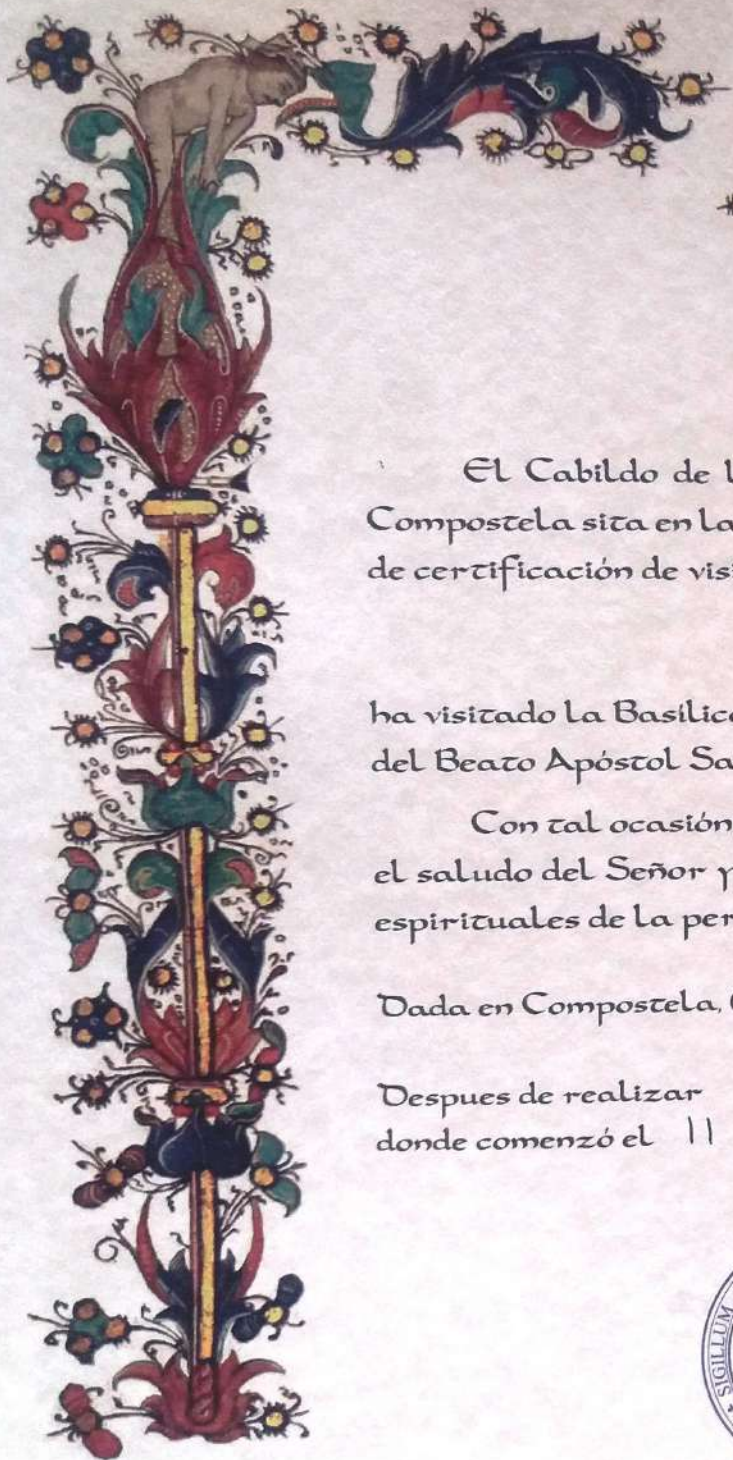 El Cabildo de l
Compostela sita en la
de certificación de visi
ha visitado la Basílica
del Beato Apóstol Sa
Con tal ocasión
el saludo del Señor y
espirituales de la per
Dada en Compostela,
Despues de realizar
donde comenzó el 11
SIGILLUM